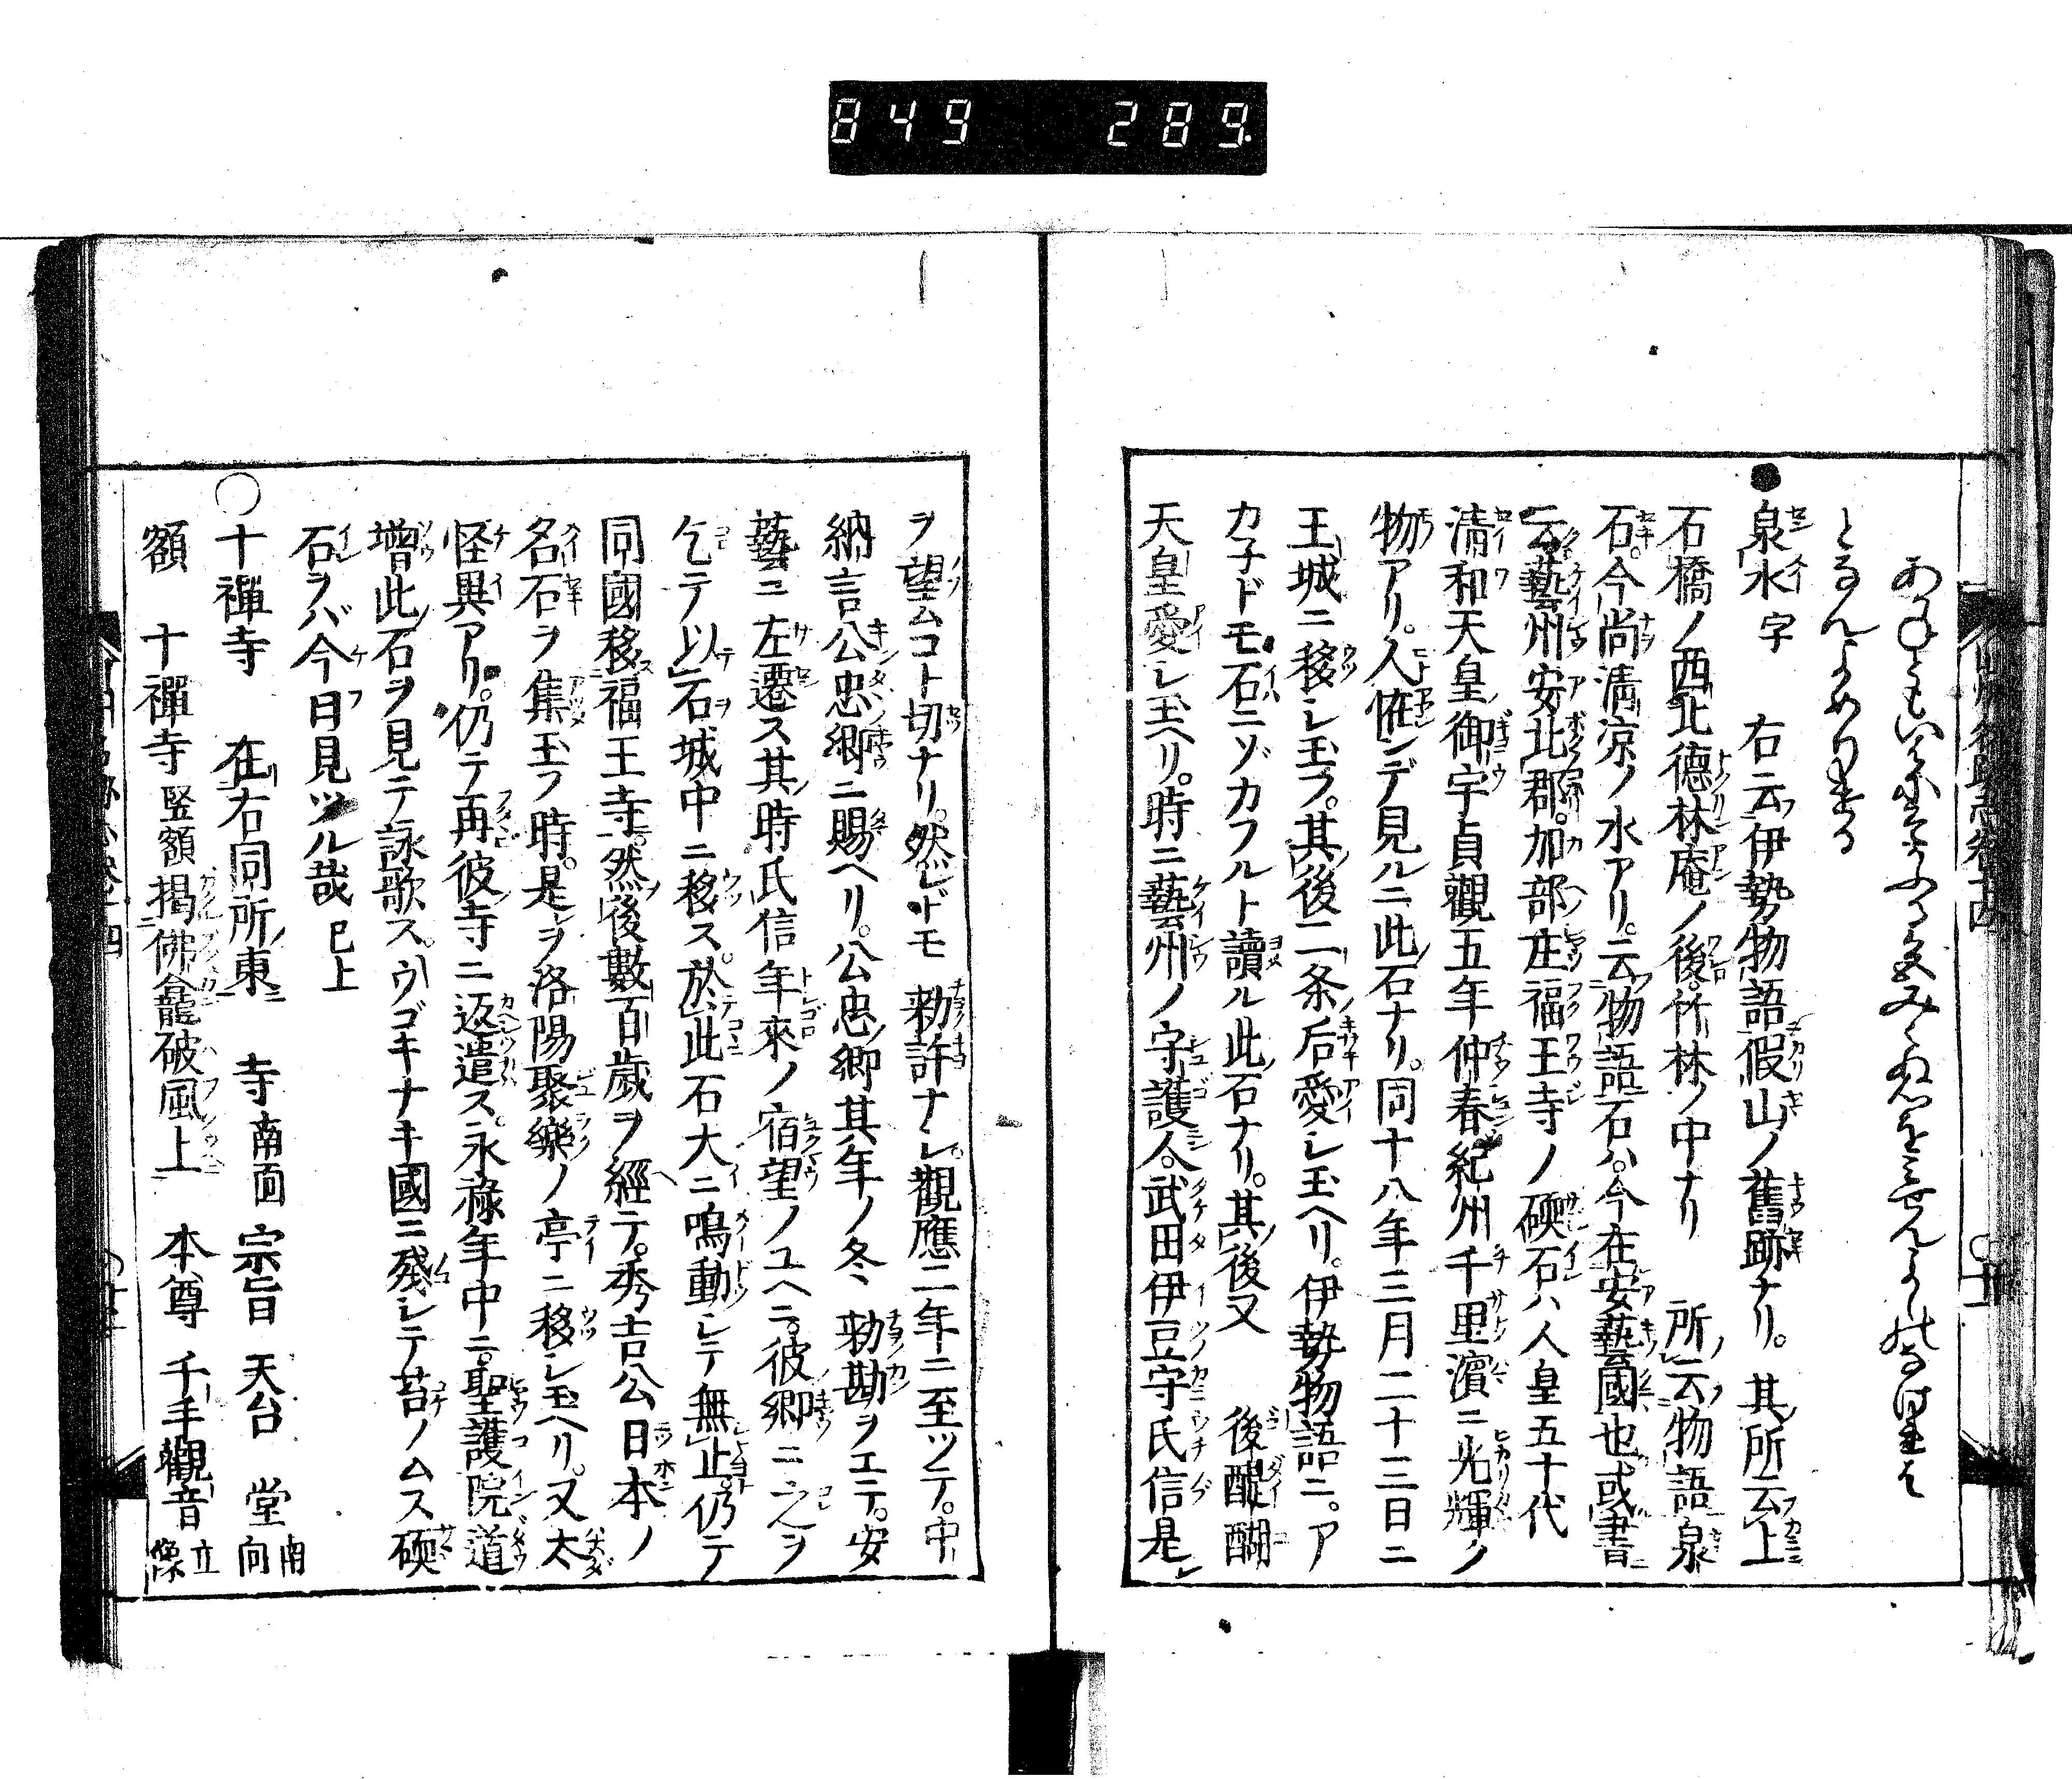 849 289
あかねともいはにそかふる色みえぬ心をみせんよしのなけれは
となんよめりける
●泉水 字 右云伊勢物語假山ノ舊跡ナリ。其所云上
石橋ノ西北德林庵ノ後。竹林ノ中ナリ 所云物語泉
石。今尚淸凉ノ水アリ。云物語石ハ。今在安藝國也或書
云藝州安北郡。加部庄福王寺ノ礝石ハ人皇五十代
淸和天皇御宇貞觀五年仲春紀州千里濵ニ光輝ノ
物アリ。人恠ンデ見ルニ此石ナリ。同十八年三月二十三日ニ
王城ニ移シ玉フ。其後二条后愛シ玉ヘリ。伊勢物語ニ。ア
カ子ドモ石ニゾカフルト讀ル此石ナリ。其後又 後醍醐
天皇愛シ玉ヘリ。時ニ藝州ノ守護人。武田伊豆守氏信是レ
ヲ望ムコト切ナリ。然レドモ 勅許ナシ。觀應二年ニ至ツテ。中
納言公忠卿ニ賜ヘリ。公忠卿其年ノ冬 勅勘ヲエテ。安
藝ニ左遷ス其時氏信年來ノ宿望ノユヘニ。彼卿ニ之ヲ
乞テ以石城中ニ移ス。於此石大ニ鳴動シテ無止。仍テ
同國移福王寺。然後數百歲ヲ經テ。秀吉公日本ノ
名石ヲ集玉フ時。是ヲ洛陽聚樂ノ亭ニ移シ玉ヘリ。又太
怪異アリ。仍テ再彼寺ニ返遣ス。永祿年中ニ。聖護院道
增此石ヲ見テ詠歌ス。ウゴキナキ國ニ殘シテ苔ノムス礝
石ヲバ今日見ツル哉 已上
○十禪寺 在右同所東 寺南面 宗旨 天台 堂南向
額 十禪寺 竪額揭佛龕破風上 本尊 千手觀音立像